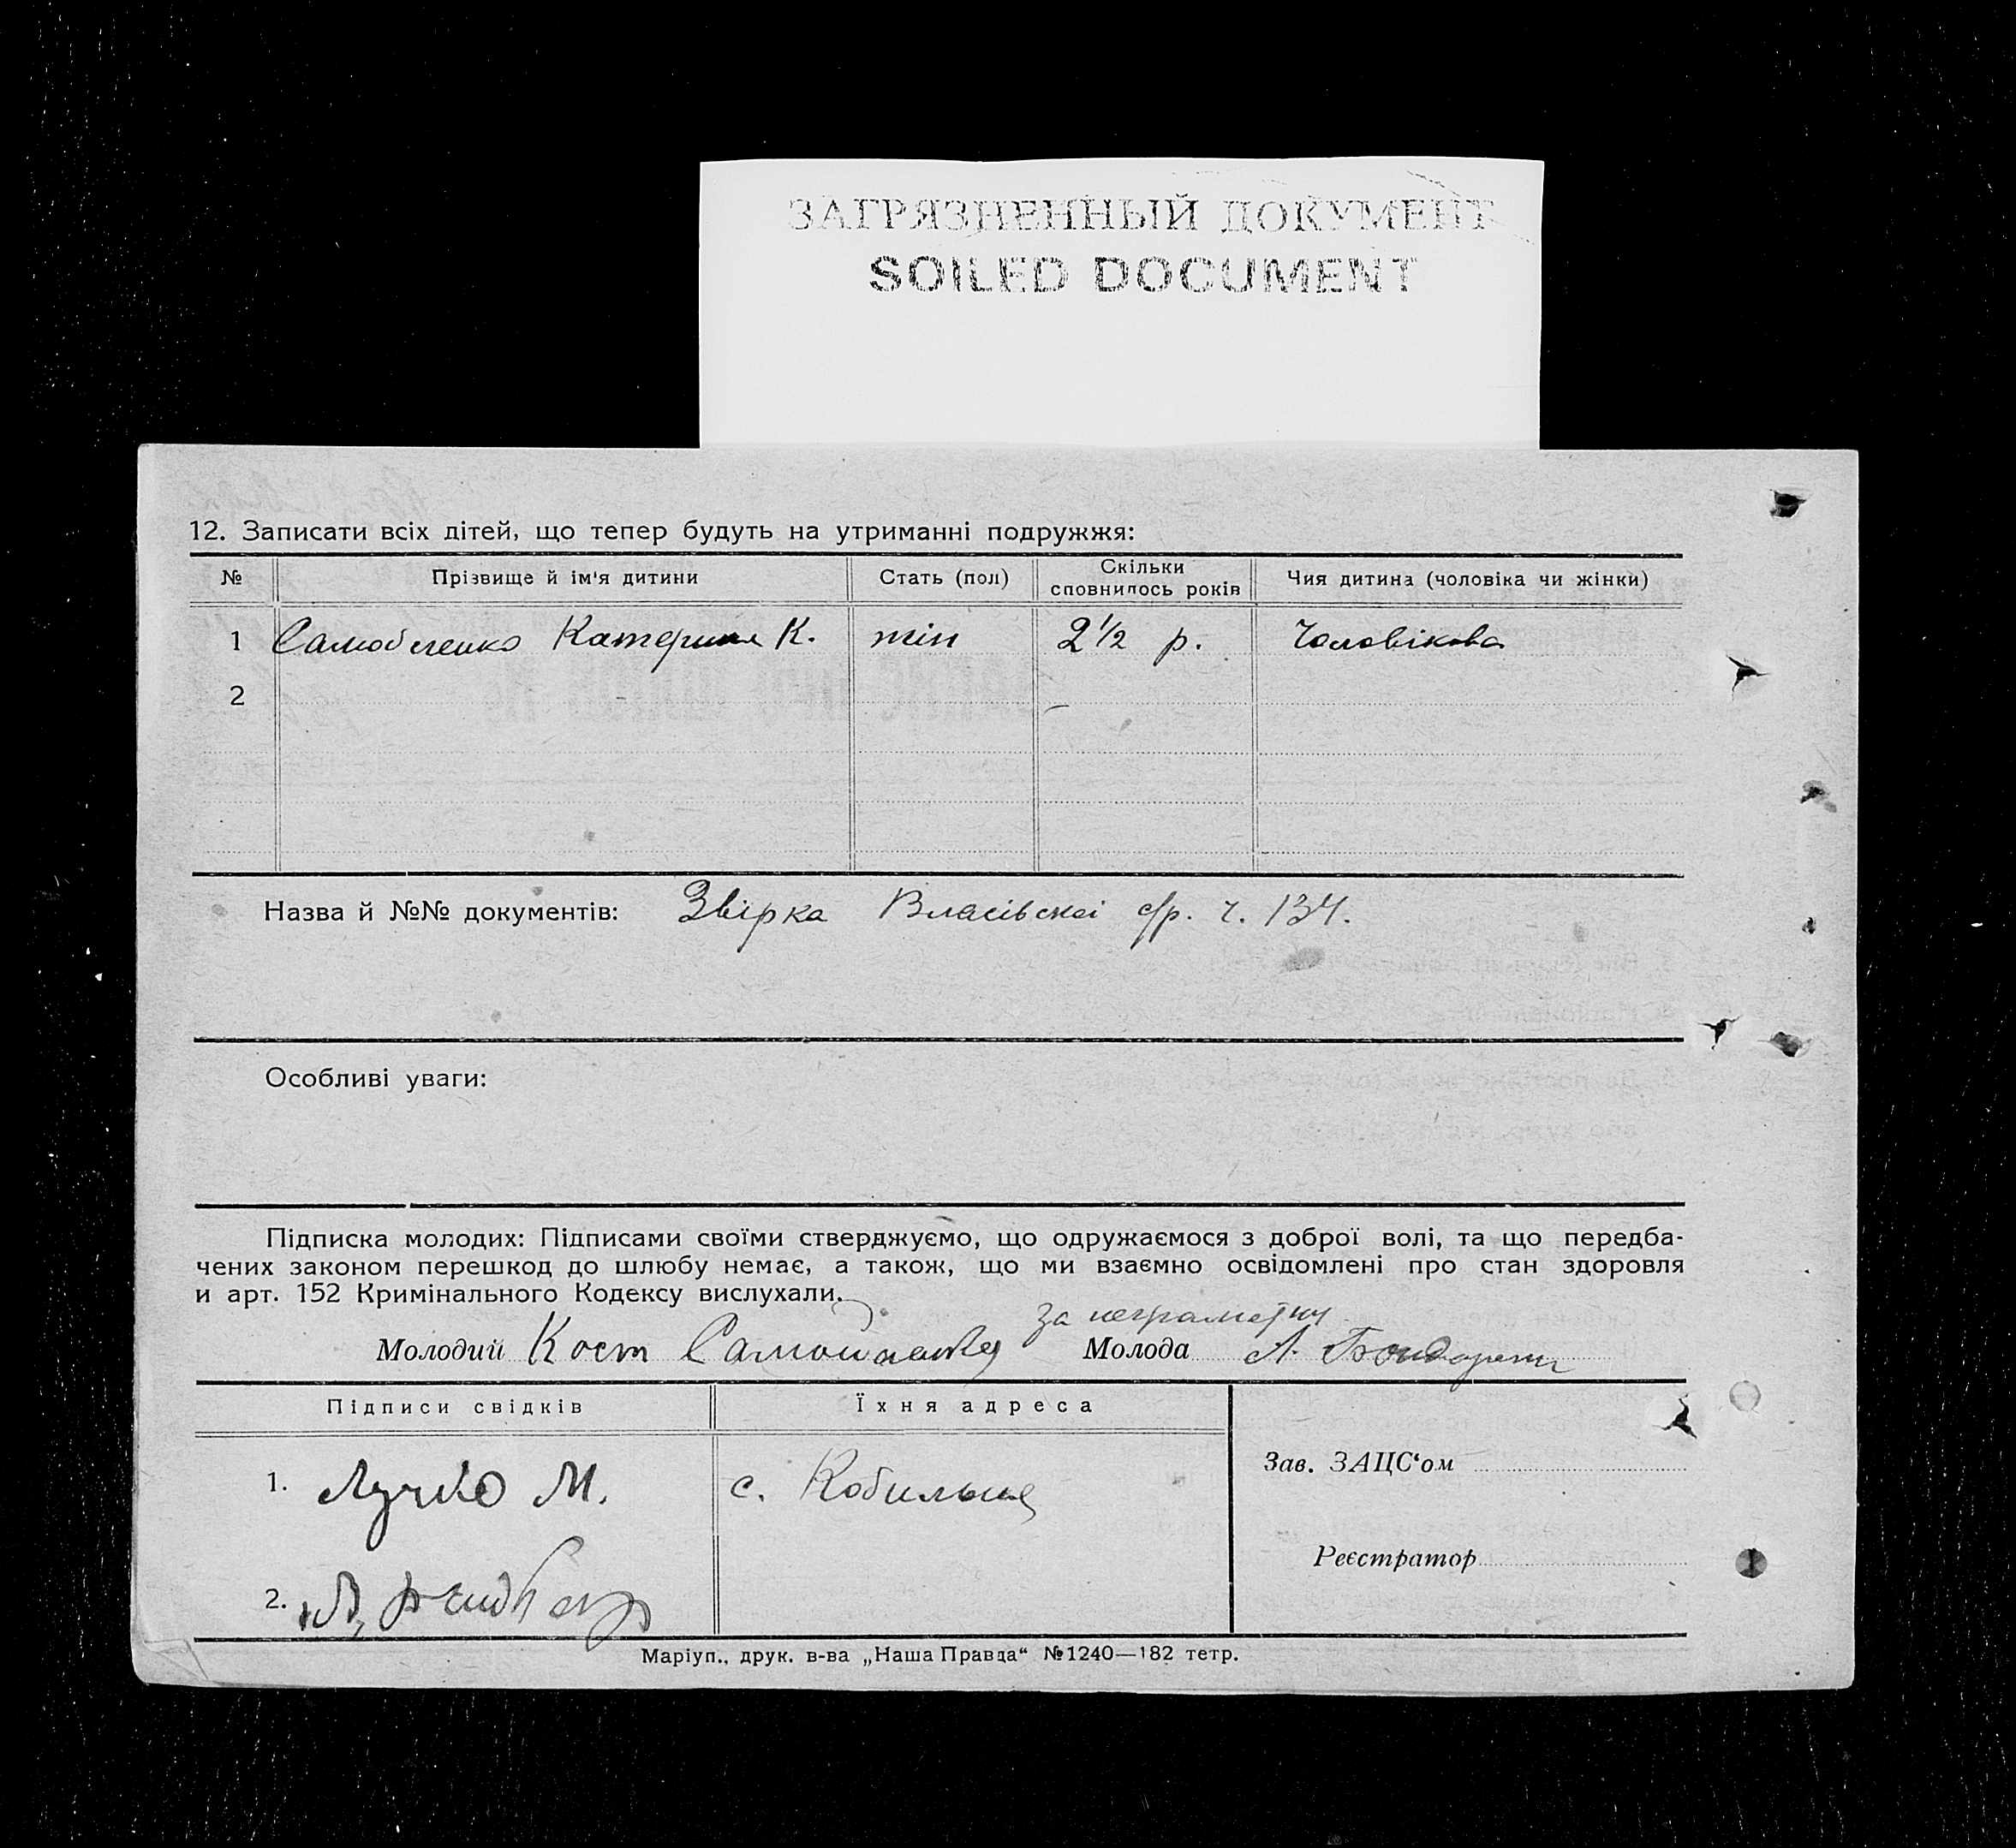 ЗАГРЯЗНЕННЫЙ ДОКУМЕНТ
SOILED DOCUMENT
12. Записати всіх дітей, що тепер будуть на утриманні подружжя:
№ Прізвище й ім'я дитини Стать (пол) Скільки сповнилось років Чия дитина (чоловіка чи жінки)
1 Катерина К. жін 2½ р. Чоловікова
2
Назва й №№ документів: Звірка Власівскої с/р. ч. 134.
Особливі уваги:
Підписка молодих: Підписами своїми стверджуємо, що одружаємося з доброї волі, та що передба-
чених законом перешкод до шлюбу немає, а також, що ми взаємно освідомлені про стан здоровля
и арт. 152 Кримінального Кодексу вислухали.
за
Молодий Кост Молода А.
Підписи свідків Їхня адреса
Зав. ЗАЦС‘ом
1. Лучко М. с.
Реєстратор
2.
Маріуп., друк. в-ва „Наша Правда“ №1240—182 тетр.